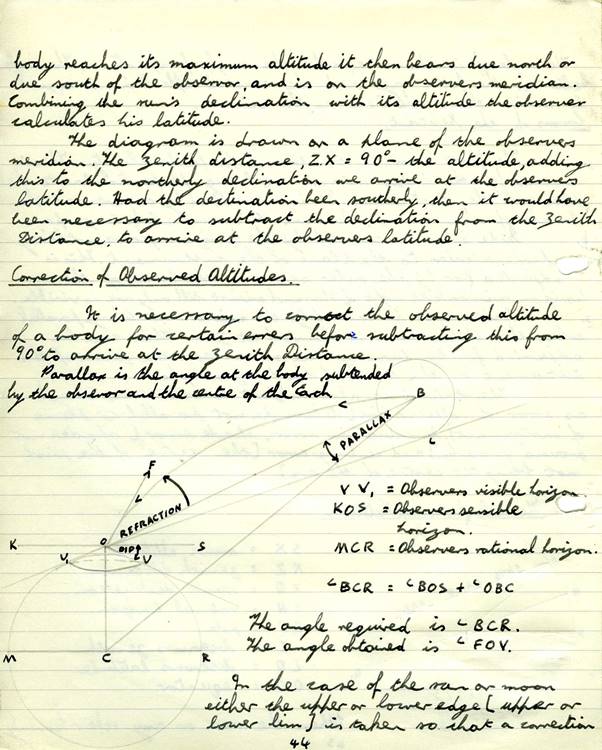 body reaches its maximum altitude it then bears due north or
due south of the observor, and is on the observers meridian.
Combining the sun's declination with its altitude the observer
calculates his latitude.
The diagram is drawn on a plane of the observers
meridian. The Zenith distance, ZX = 90° - the altitude, adding
this to the northerly declination we arrive at the observers
latitude. Had the declination been southerly, then it would have
been necessary to subtract the declination from the Zenith
Distance, to arrive at the observers latitude.
Correction of Observed Altitudes.
It is necessary to correct the observed altitude
of a body for certain errors before subtracting this from
90° to arrive at the Zenith Distance.
Parallax is the angle at the body subtended
by the observor and the centre of the Earth
B
PARALLAX
F
REFRACTION
V V₁ = Observers visible horizon.
KOS = Observers sensible
horizon.
K
O
DIP
S
MCR = Observers rational horizon.
V₁
V
∠BCR = ∠BOS + ∠OBC
The angle required is ∠BCR.
The angle obtained is ∠FOV.
M
C
R
In the case of the sun or moon
either the upper or lower edge (upper or
lower lim) is taken so that a correction
44